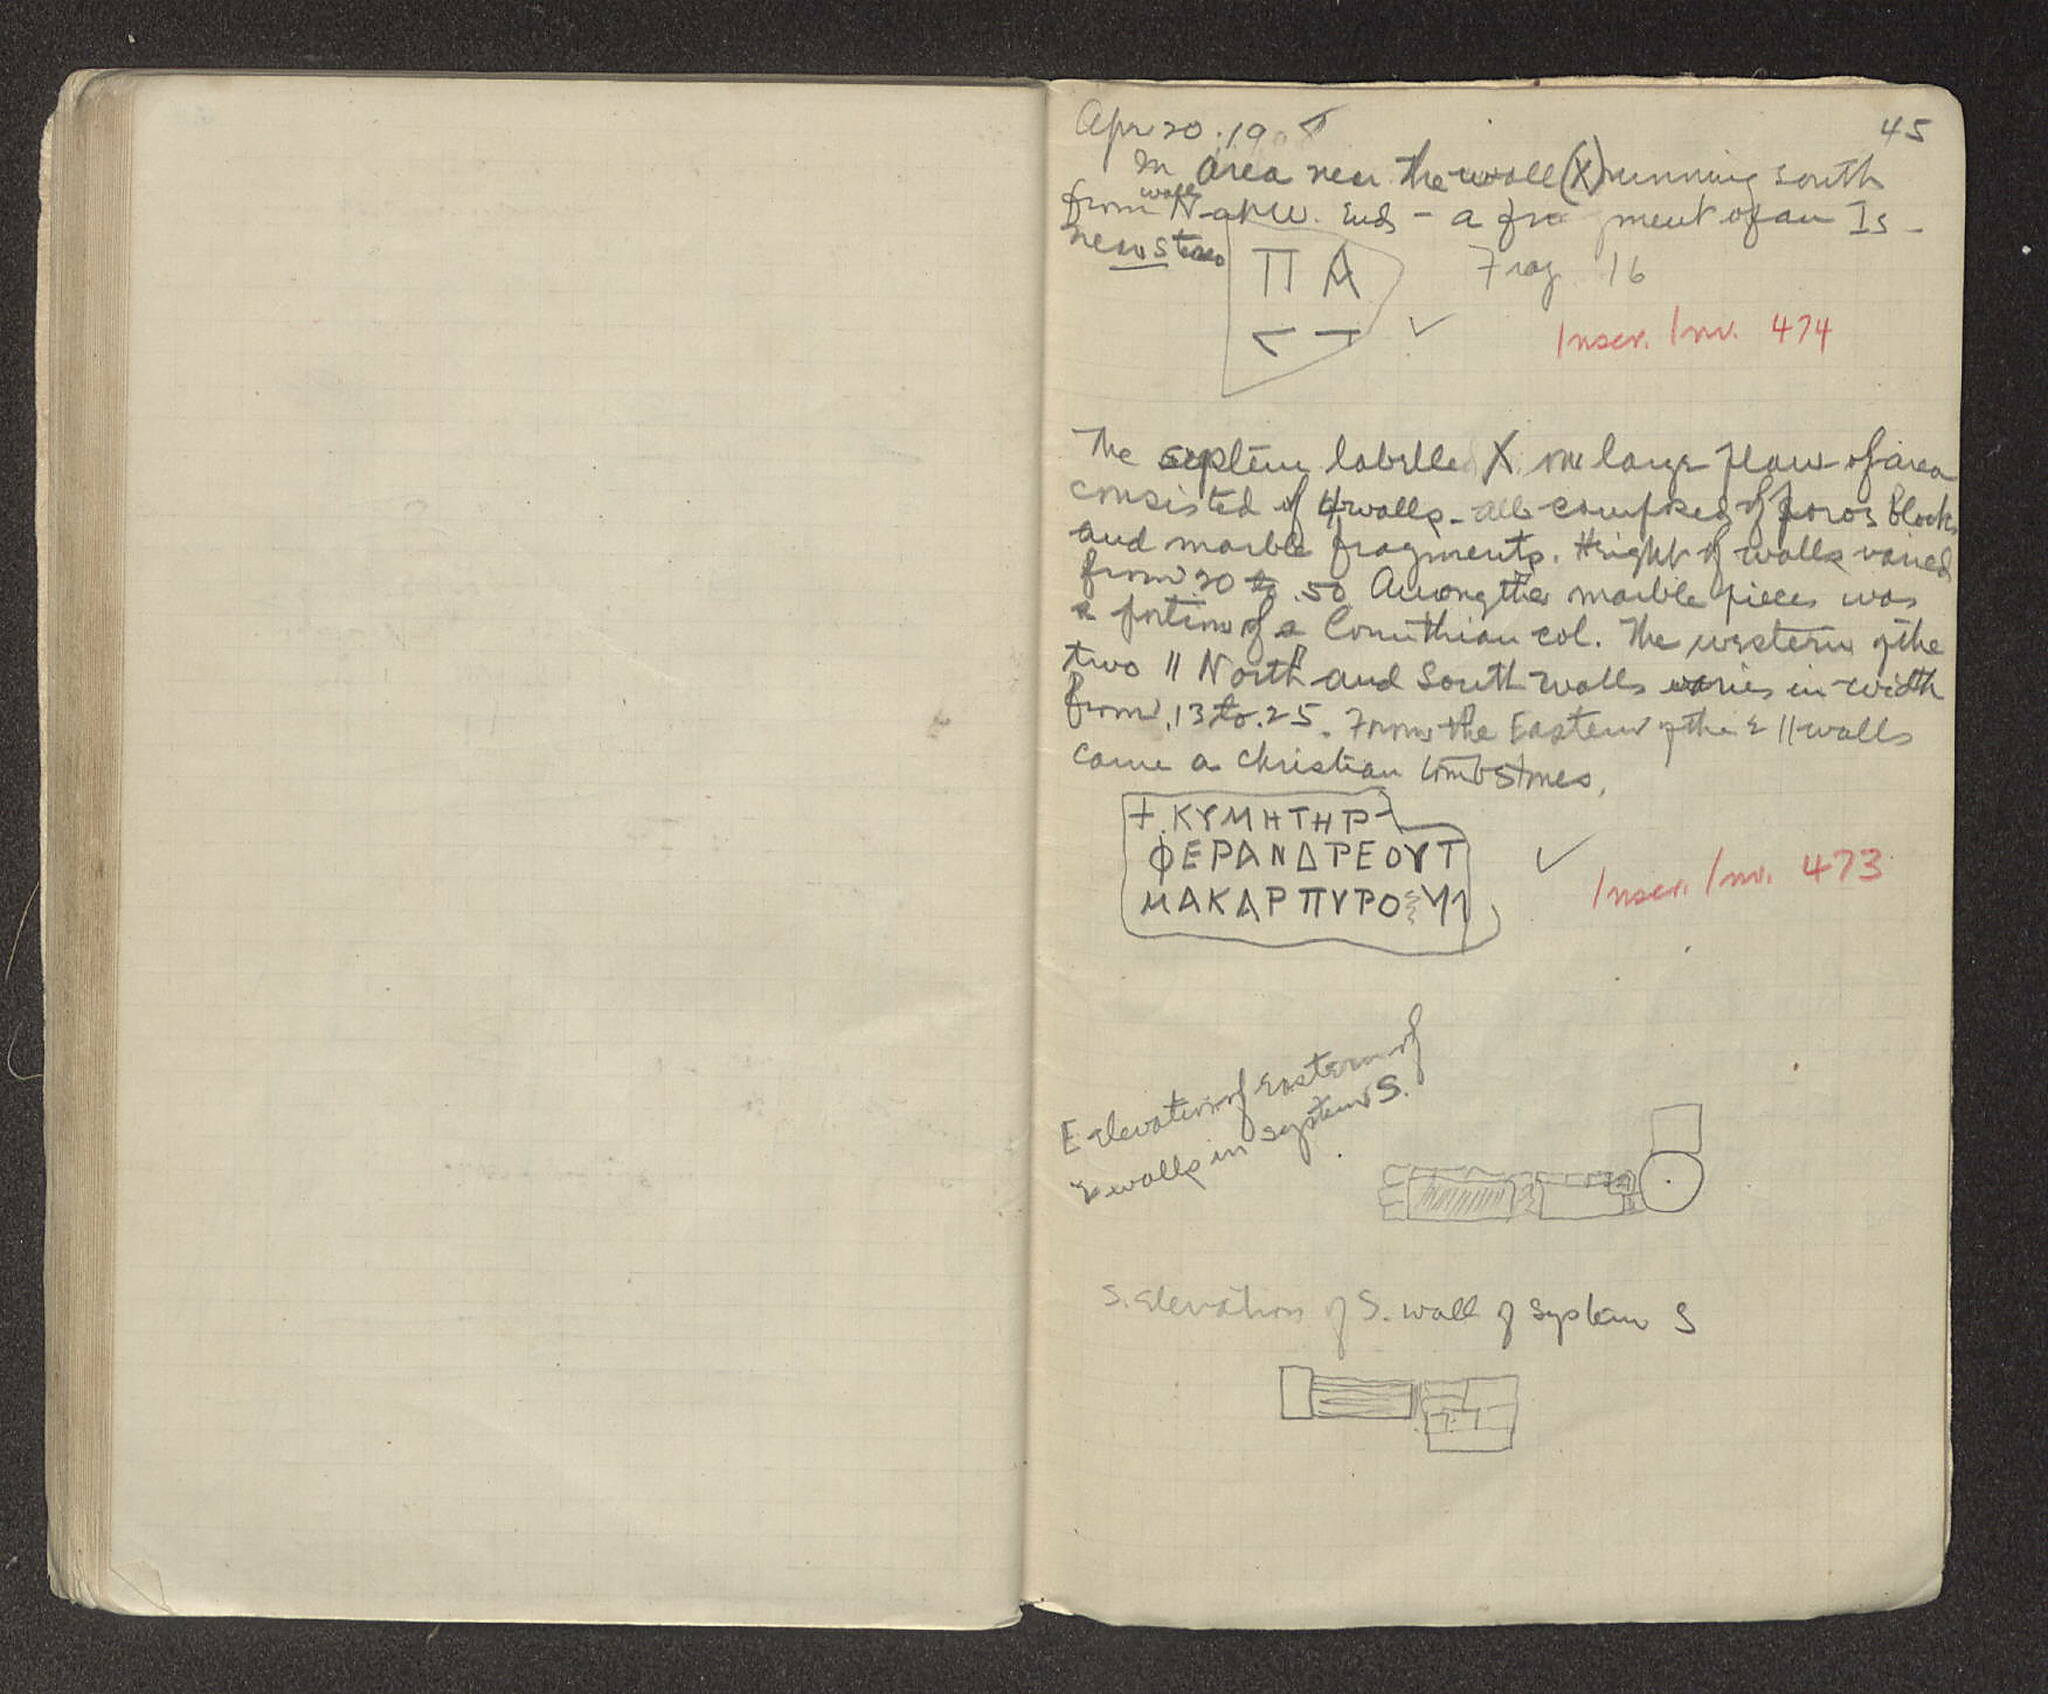 Apr 20. 1908
45
In area near the wall (X) running south
from N wall at N.W. End - a fragment of an Is-
near Stereo
ΠΑ
Frag 16
Inscr. Inv. 474
The system labelled X on large plan of area
consisted of 4 walls - all composed of poros blocks
and marble fragments. Height of walls varied
from .20 to .50 Among the marble pieces was
a portion of a Corinthian col. The western of the
two || North and South walls varies in width
from .13 to .25. From the Eastern of the 2 || walls
came a Christian tombstones.
+ ΚΥΜΗΤΗΡ
ΦΕΡΑΝΔΡΕΟΥΤ
ΜΑΚΑΡΠΥΡΟ
Inscr. Inv. 473
E Elevation of Eastern of
2 walls in system S.
S. Elevation of S. wall of system S